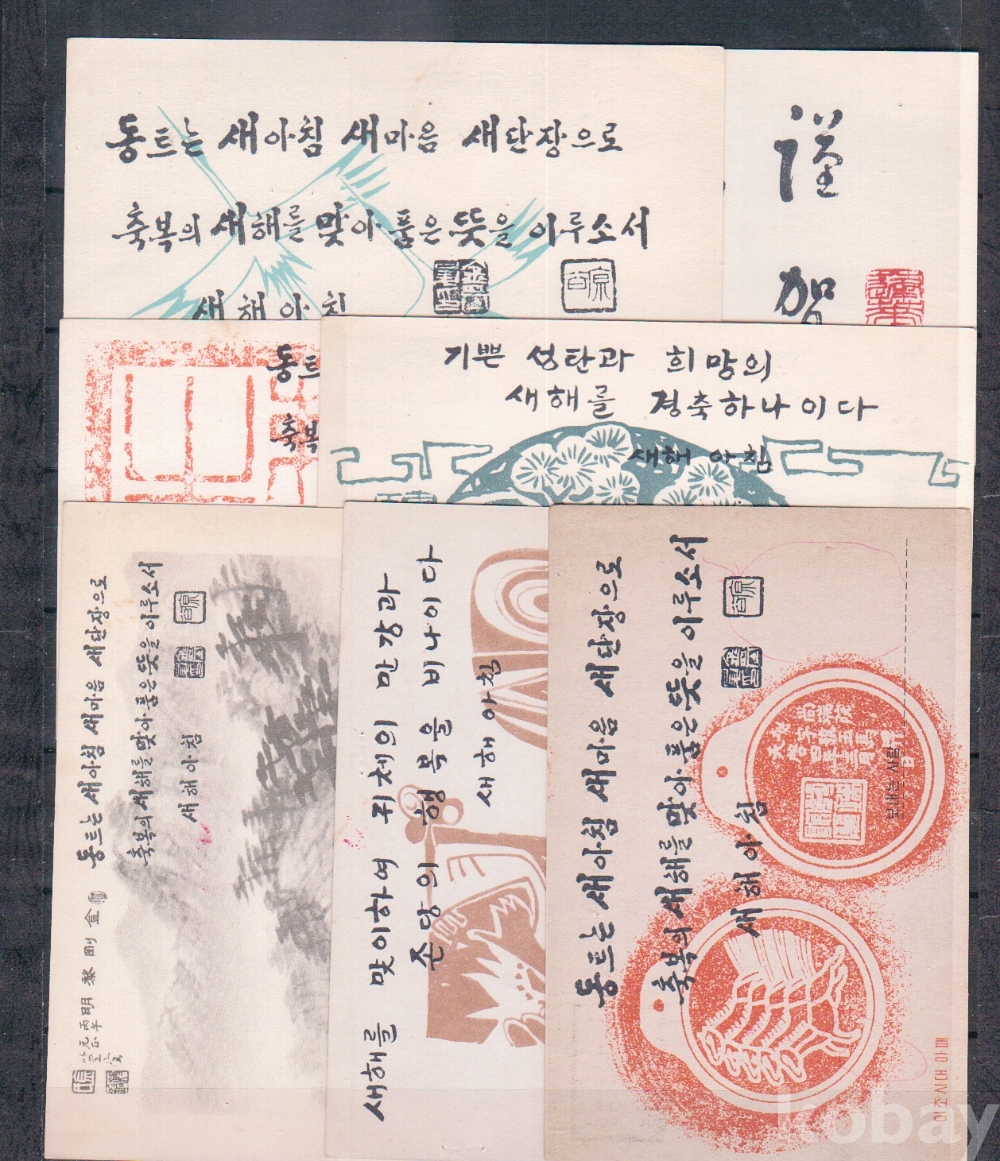 동트는 새아침 새마음 새단장으로
축복의 새해를 맞아 품은 뜻을 이루소서
새해 아침
謹
賀
동트
축복
기쁜 성탄과 희망의
새해를 경축하나이다
새해 아침
동트는 새아침 새마음 새단장으로
축복의 새해를 맞아 품은 뜻을 이루소서
새해아침
새해를 맞이하여 귀체의 만강과
존당의 행복을 비나이다
새해아침
동트는 새아침 새마음 새단장으로
축복의 새해를 맞아 품은 뜻을 이루소서
새해아침
보내는 사람
이조시대 마패
kobay